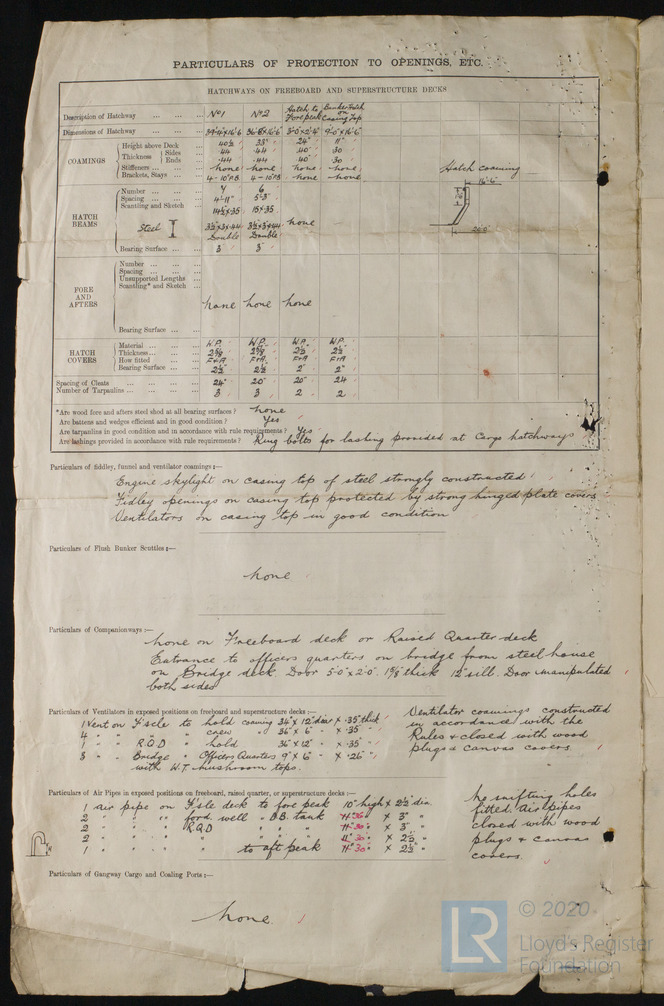 PARTICULARS OF PROTECTION TO OPENINGS, ETC.
HATCHWAYS ON FREEBOARD AND SUPERSTRUCTURE DECKS
Description of Hatchway ... No 1 No 2 Hatch to Forepeak Bunker Hatch on Casing Top
Dimensions of Hatchway ... 36'-8"x16'-6" 3'-0"x2'-4" 9'-0"x16'-6"
COAMINGS
Height above Deck ... 40½ 33" 24" 11"
Thickness Sides ... .44 .44 .40 .30
Ends ... .44 .44 .40 .30
Stiffeners ... none none none none
Brackets, Stays ... 4-10"P.B 4-10"P.B none none
Hatch coaming
16'-6"
HATCH BEAMS
Steel I
Number ... 7 6
Spacing ... 4'-11" 5'-3"
Scantling and Sketch ... 14½x.35 15x.35
3½x3x.44 3½x3x.44 none
Double Double
Bearing Surface ... 3 3"
FORE AND AFTERS
Number ...
Spacing ...
Unsupported Lengths ...
Scantling* and Sketch ...
none none none
Bearing Surface ...
HATCH COVERS
Material ... W.P. W.P. W.P. W.P.
Thickness ... 2⅝ 2⅝ 2½ 2½
How fitted ... F+A F+A F+A F+A
Bearing Surface ... 2½" 2½ 2" 2"
Spacing of Cleats ... 24" 20" 20" 24
Number of Tarpaulins ... 3 3 2 2
*Are wood fore and afters steel shod at all bearing surfaces? none
Are battens and wedges efficient and in good condition? Yes
Are tarpaulins in good condition and in accordance with rule requirements? Yes
Are lashings provided in accordance with rule requirements? Ring bolts for lashing provided at Cargo hatchways
Particulars of fiddley, funnel and ventilator coamings:—
Engine skylight on casing top of steel strongly constructed
Fidley openings on casing top protected by strong hinged plate covers
Ventilators on casing top in good condition
Particulars of Flush Bunker Scuttles:—
none
Particulars of Companionways:—
None on Freeboard deck or Raised Quarter deck
Entrance to officers quarters on bridge from steel house
on Bridge deck. Door 5'-0"x2'-0". 1⅝" thick 12" sill. Door manipulated
both sides
Particulars of Ventilators in exposed positions on freeboard and superstructure decks:—
1 Vent on F'xle to hold coaming 34"x12" diar x .35" thick
4 " " " " crew " 36"x6" x .35"
1 " " R.Q.D " hold 36"x12" x .35"
3 " " Bridge " Officers Quarters 9"x6" " x .26"
with W.T. mushroom tops.
Ventilator coamings constructed
in accordance with the
Rules & closed with wood
plugs & canvas covers
Particulars of Air Pipes in exposed positions on freeboard, raised quarter, or superstructure decks:—
1 air pipe on F'sle deck to fore peak 10" high x 2½" dia.
2 " " " ford. well " D.B. tank 30" x 3" "
2 " " " R.Q.D " " " 30" x 3" "
2 " " " " " " " 30" x 2½ "
1 " " " " to aft peak 30" x 2½ "
No snifting holes
fitted. Air pipes
closed with wood
plugs & canvas
covers.
Particulars of Gangway Cargo and Coaling Ports:—
None
LR
© 2020
Lloyd's Register
Foundation